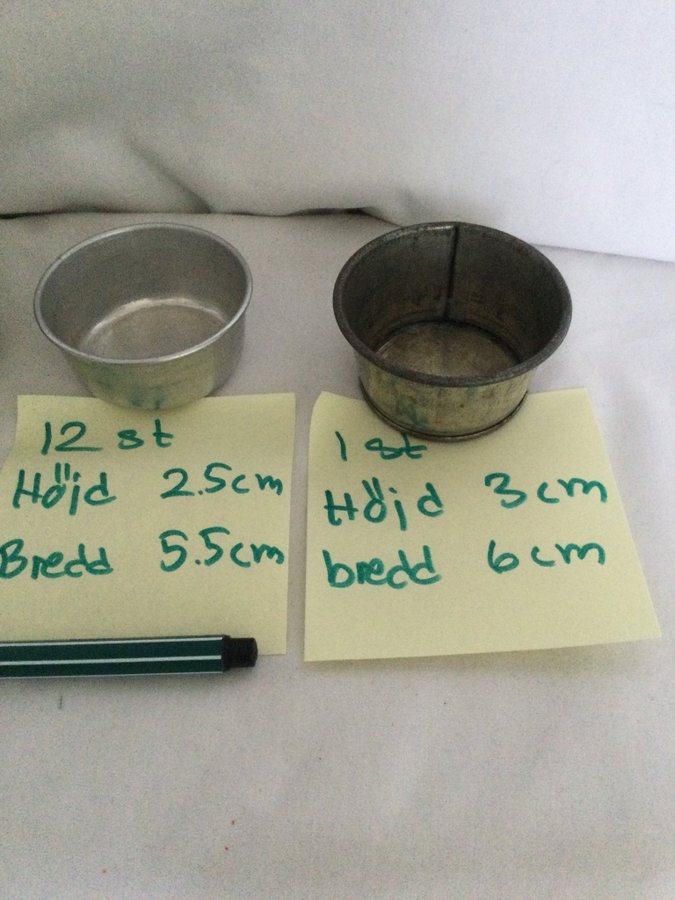 12 st
Höjd 2.5cm
Bredd 5.5cm
1 st
Höjd 3cm
bredd 6cm